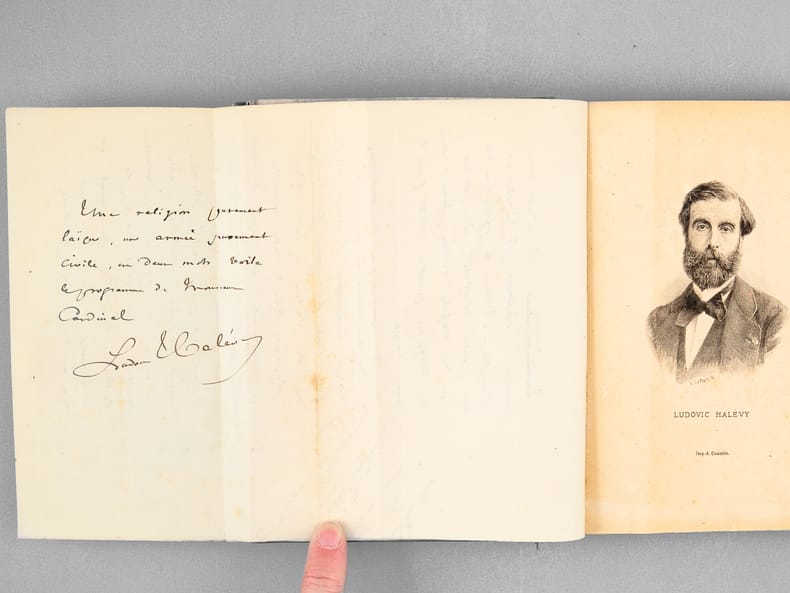 Une religion purement
laïque, une armée purement
civile, en deux mots voila
le programme de Monsieur
Cardinal
Ludovic Halévy
LUDOVIC HALÉVY
Imp. A. Quantin.